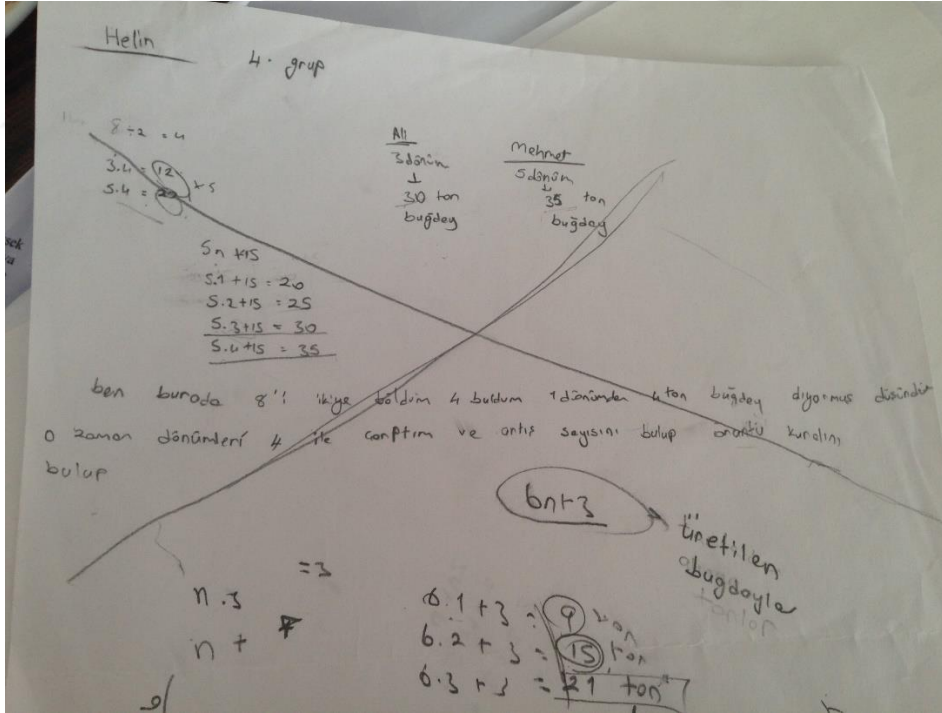 Helin
4. grup
8 ÷ 2 = 4
3.4 = 12
5.4 = 20
+5
Ali
3 dönüm
↓
30 ton
buğdey
Mehmet
5 dönüm
↓
35 ton
buğdey
5n +15
5.1 +15 = 20
5.2 +15 = 25
5.3 +15 = 30
5.4 +15 = 35
ben burada 8'i ikiye böldüm 4 buldum 1 dönümden 4 ton buğdey diyormuş düşündüm
o zaman dönümleri 4 ile çarptım ve artış sayısını bulup örüntü kuralını
bulup
6n+3
üretilen
buğdayla
tonlar
=3
n.3
n +
6.1 + 3 = 9 ton
6.2 + 3 = 15 ton
6.3 + 3 = 21 ton